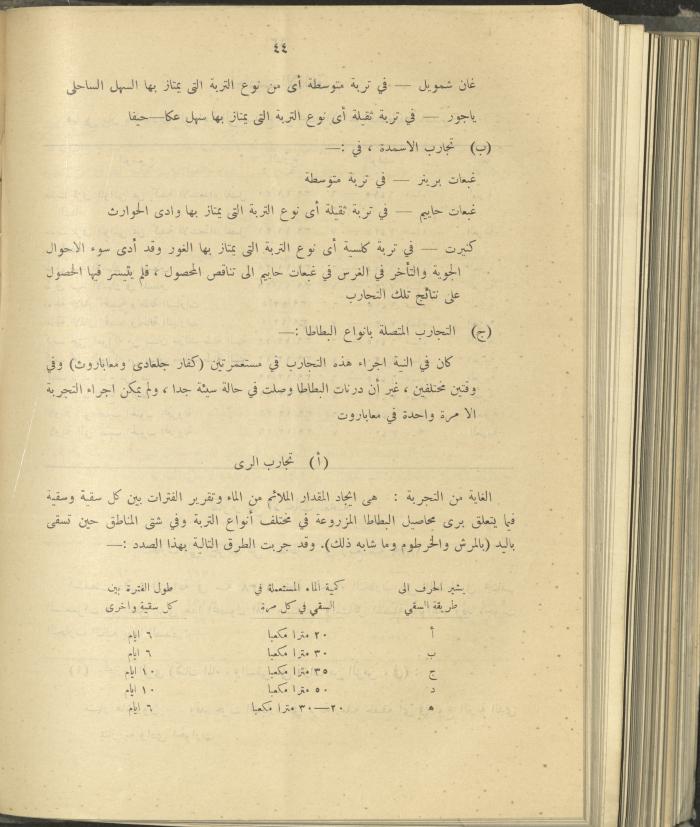 ٤٤
غان شمويل — في تربة متوسطة أى من نوع التربة التى يمتاز بها السهل الساحلى
ياجور — في تربة ثقيلة أى نوع التربة التى يمتاز بها سهل عكا—حيفا
(ب) تجارب الاسمدة ، في :—
غبعات برينر — في تربة متوسطة
غبعات حاييم — في تربة ثقيلة أى نوع التربة التى يمتاز بها وادى الحوارث
كنيرت — في تربة كلسية أى نوع التربة التى يمتاز بها الغور وقد أدى سوء الاحوال
الجوية والتأخر في الغرس في غبعات حاييم الى تناقص المحصول ، فلم يتيسر فيها الحصول
على نتائج تلك التجارب
(ج) التجارب المتصلة بانواع البطاطا :—
كان في النية اجراء هذه التجارب في مستعمرتين (كفار جلعادى ومعاباروث) وفي
وقتين مختلفين ، غير أن درنات البطاطا وصلت في حالة سيئة جدا ، ولم يمكن اجراء التجربة
الا مرة واحدة في معاباروت
(أ) تجارب الرى
الغاية من التجربة : هى ايجاد المقدار الملائم من الماء وتقرير الفترات بين كل سقية وسقية
فيما يتعلق برى محاصيل البطاطا المزروعة في مختلف أنواع التربة وفي شتى المناطق حين تسقى
باليد (بالمرش والخرطوم وما شابه ذلك). وقد جربت الطرق التالية بهذا الصدد :—
يشير الحرف الى كمية الماء المستعملة في طول الفترة بين
طريقة السقي السقي في كل مرة كل سقية واخرى
أ ٢٠ مترا مكعبا ٦ ايام
ب ٣٠ مترا مكعبا ٦ ايام
ج ٣٥ مترا مكعبا ١٠ ايام
د ٥٠ مترا مكعبا ١٠ ايام
ه ٢٠—٣٠ مترا مكعبا ٦ ايام